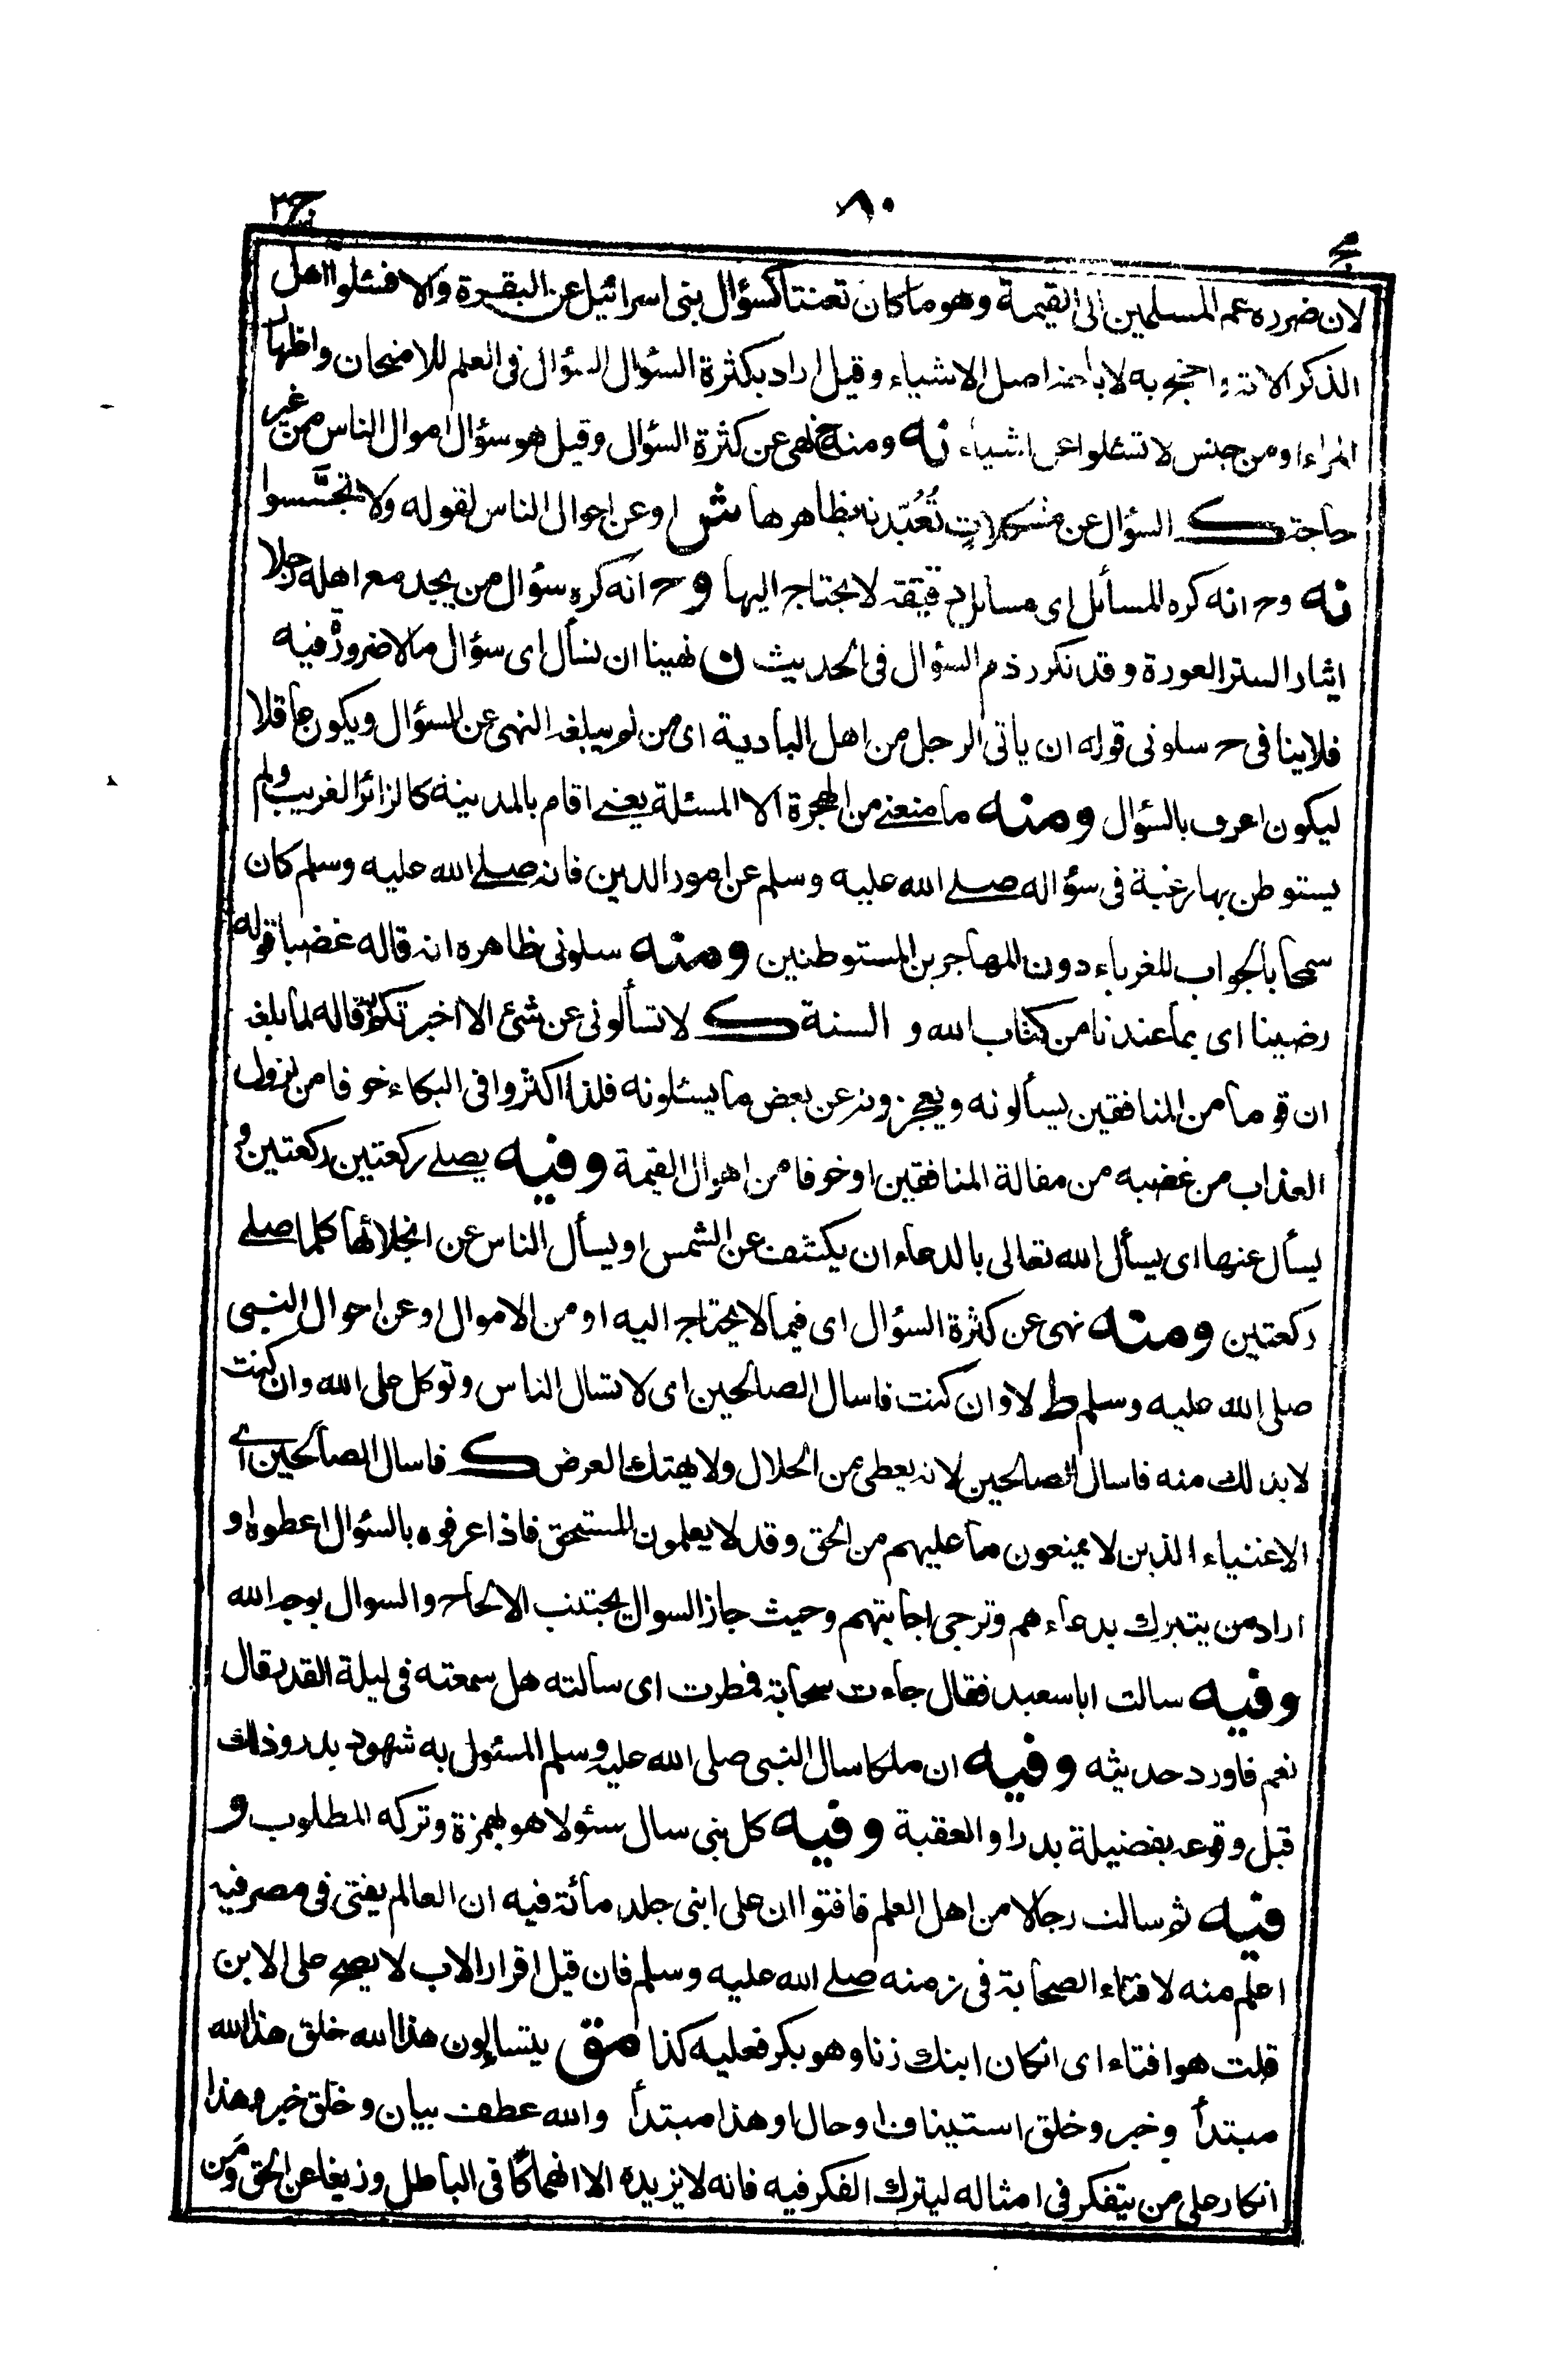 ج٣ ٨٠
لان ضرره عم المسلمين الى القيمة وهو ما كان تعنتا كسؤال بنى اسرائيل عن البقرة والا فسئلوا اهل
الذكر الاتـ واحتجـ به لاباحـ اصل الاشياء وقيل اراد بكثرة السؤال السؤال فى العلم للامتحان واظهار
المراء او من جنس لا تسئلوا عن اشياء نه ومنه ح نهى عن كثرة السؤال وقيل هو سؤال اموال الناس من غير
حاجة ك السؤال عن مشكلات تُعُبّدنا بظاهرها ش او عن احوال الناس لقوله ولا تجسسوا
نه وح انه كره المسائل اى مسائل دقيقة لا يحتاج اليها وح انه كره سؤال من يجد مع اهله رجلا
ايثارا لستر العورة وقد تكرر ذم السؤال فى الحديث ن نهينا ان نسأل اى سؤال ما لا ضرورة فيه
فلا ينافى ح سلونى قوله ان ياتى الرجل من اهل البادية اى من لم يبلغه النهى عن السؤال ويكون عاقلا
ليكون اعرف بالسؤال ومنه ما منعنى من الهجرة الا المسئلة يعنى اقام بالمدينة كالزائر الغريب ولم
يستوطن بها رغبة فى سؤاله صلى الله عليه وسلم عن امور الدين فانه صلى الله عليه وسلم كان
سمحا بالجواب للغرباء دون المهاجرين المستوطنين ومنه سلونى ظاهره انه قاله غضبا قوله
رضينا اى بما عندنا من كتاب الله و السنة ك لا تسألونى عن شئ الا اخبرتكم قاله لما بلغه
ان قوما من المنافقين يسألونه ويعجزونه عن بعض ما يسئلونه فلذا اكثروا فى البكاء خوفا من نزول
العذاب من غضبه من مقالة المنافقين او خوفا من اهوال القيمة وفيه يصلى ركعتين ركعتين و
يسأل عنها اى يسأل الله تعالى بالدعاء ان يكشف عن الشمس او يسأل الناس عن انجلائها كلما صلى
ركعتين ومنه نهى عن كثرة السؤال اى فيما لا يحتاج اليه او من الاموال او عن احوال النبى
صلى الله عليه وسلم ط لا وان كنت فاسال الصالحين اى لا تسال الناس وتوكل على الله وان كنت
لا بد لك منه فاسال الصالحين لانه يعطى من الحلال ولا يهتك العرض ك فاسال الصالحين اى
الاغنياء الذين لا يمنعون ما عليهم من الحق وقد لا يعلمون المستحق فاذا عرفوه بالسؤال اعطوه او
اراد من يتبرك بدعاءهم وترجى اجابتهم وحيث جاز السوال يجتنب الالحاح والسوال بوجه الله
وفيه سالت ابا سعيد فقال جاءت سحابة فمطرت اى سالته هل سمعته فى ليلة القدر قال
نعم فاورد حديثه وفيه ان ملكا سال النبى صلى الله عليه وسلم المسئول به شهود بدر وذلك
قبل وقوعه بفضيلة بدر او العقبة وفيه كل نبى سال سئولا هو بهمزة وتركه المطلوب و
فيه ثم سالت رجالا من اهل العلم فافتوا ان على ابنى جلد مأئة فيه ان العالم يفتى فى مصر فيه
اعلم منه لافتاء الصحابة فى زمنه صلى الله عليه وسلم فان قيل اقرار الاب لا يصح على الابن
قلت هو افتاء اى ان كان ابنك زنا وهو بكر فعليه كذا مق يتساءلون هذا الله خلق هذا الله
مبتدأ وخبر وخلق استيناف او حال او هذا مبتدأ والله عطف بيان وخلق خبر وهذا
انكار على من يتفكر فى امثاله ليترك الفكر فيه فانه لا يزيده الا انهماكا فى الباطل وزيغا عن الحق ومن